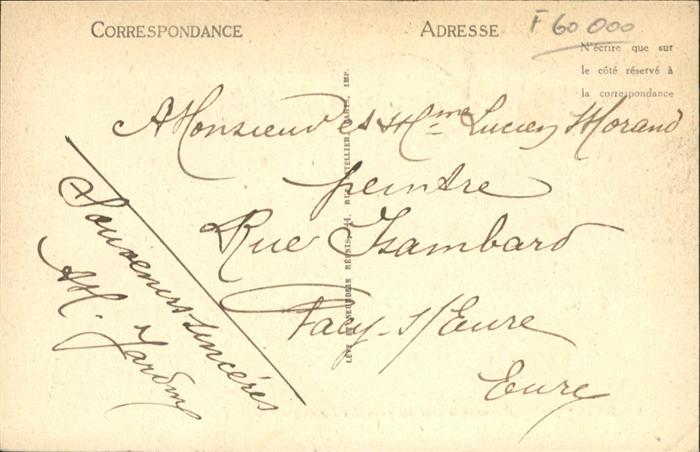 CORRESPONDANCE
ADRESSE
F 60 000
N'écrire que sur
le côté réservé à
la correspondance
A Monsieur et Mme Lucien Morand
peintre
Rue Isambard
Pacy-s/Eure
Eure
Souvenirs sincères
M. Jardin
LÉVY ET NEURDEIN RÉUNIS, 44, RUE LETELLIER, PARIS, IMP.